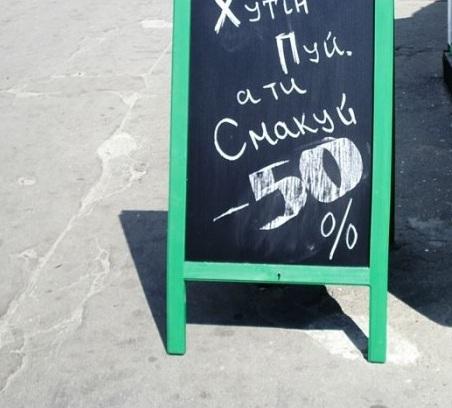 Хутін
Пуй.
а ти
Смакуй
-50
%